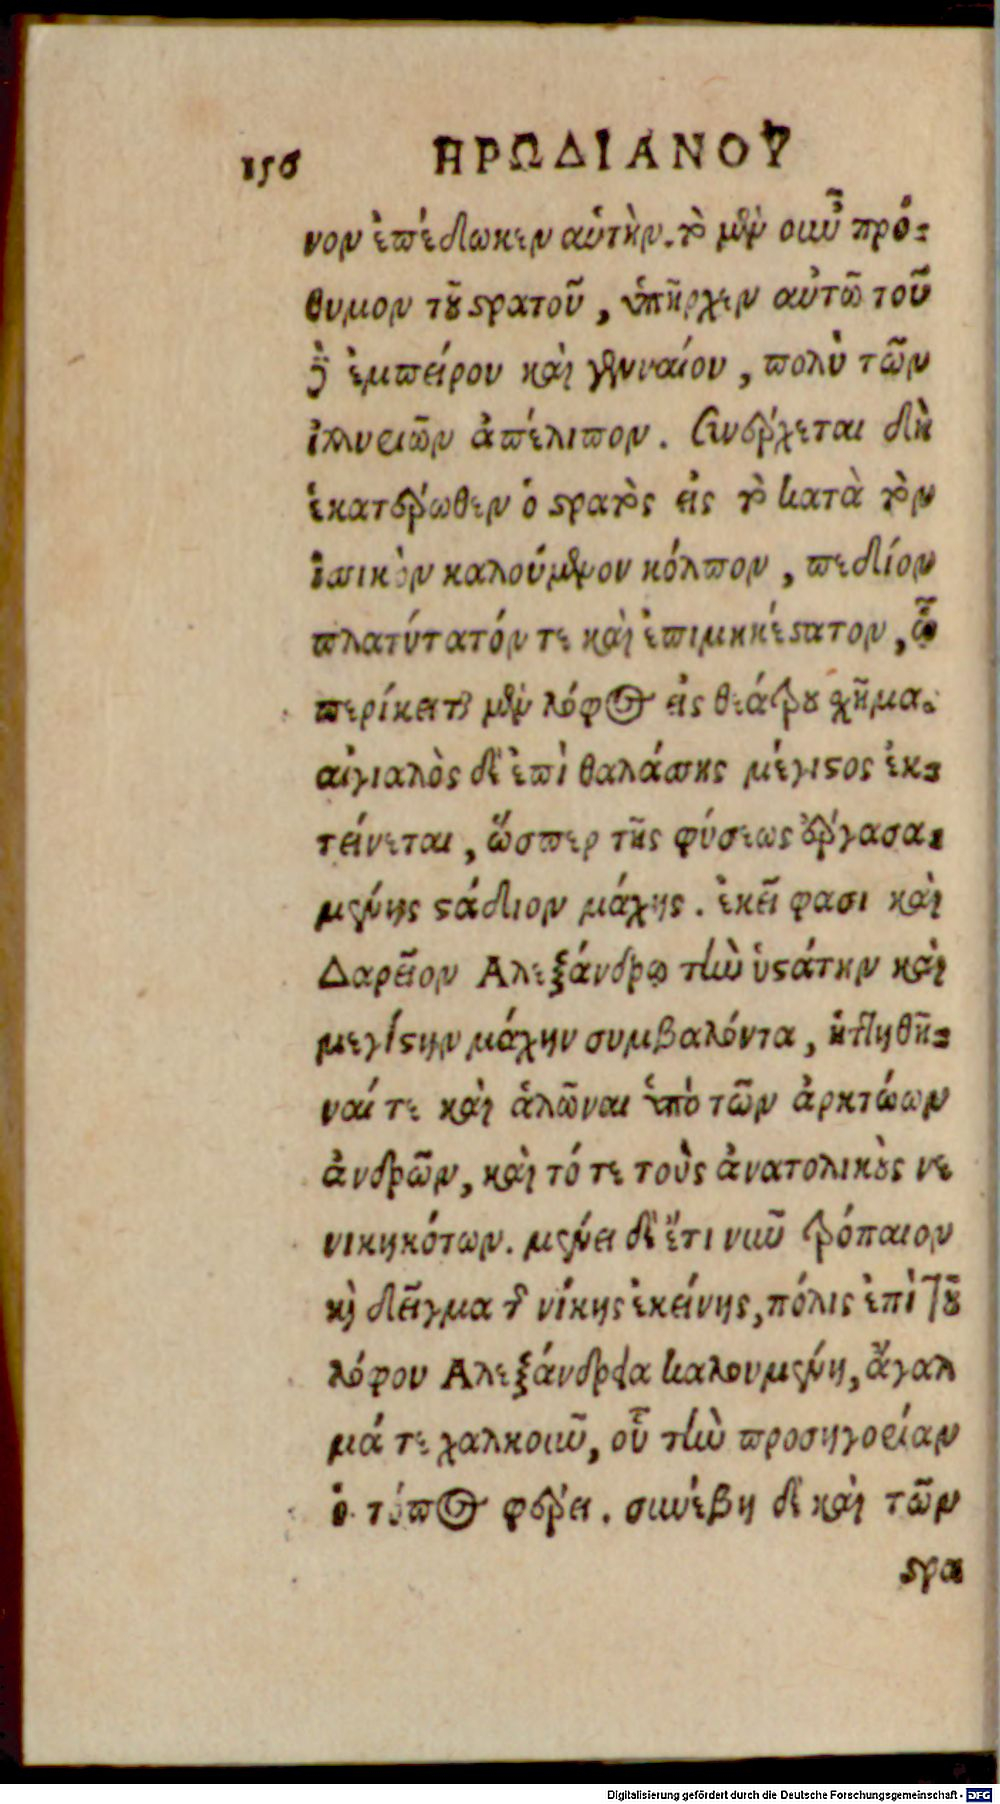 156 ΗΡΩΔΙΑΝΟΥ
νον ἐπέδωκεν αὑτὴν. τὸ μὲν οὖν πρό-
θυμον τοῦ στρατοῦ, ὑπῆρχεν αὐτῷ τοῦ
δὲ ἐμπείρου καὶ γενναίου, πολὺ τῶν
ἰλλυριῶν ἀπέλιπον. Συνέρχεται δὴ
ἑκατέρωθεν ὁ στρατὸς εἰς τὸ κατὰ τὸν
ἰσσικὸν καλούμενον κόλπον, πεδίον
πλατύτατόν τε καὶ ἐπιμηκέστατον, ᾧ
περίκειται μὲν λόφος εἰς θεάτρου χῆμα.
αἰγιαλὸς δὲ ἐπὶ θαλάσσης μέγιστος ἐκ-
τείνεται, ὥσπερ τῆς φύσεως ἐργασα-
μένης στάδιον μάχης. ἐκεῖ φασι καὶ
Δαρεῖον Αλεξάνδρῳ τὴν ὑστάτην καὶ
μεγίστην μάχην συμβαλόντα, ἡττηθῆ-
ναί τε καὶ ἁλῶναι ὑπὸ τῶν ἀρκτώων
ἀνδρῶν, καὶ τότε τοὺς ἀνατολικοὺς νε
νικηκότων. μένει δὲ ἔτι νῦν τρόπαιον
καὶ δεῖγμα τῆς νίκης ἐκείνης, πόλις ἐπὶ τοῦ
λόφου Αλεξάνδρεια καλουμένη, ἄγαλ
μά τε χαλκοῦν, οὗ τὴν προσηγορίαν
ὁ τόπος φέρει. συνέβη δὲ καὶ τῶν
στρα
Digitalisierung gefördert durch die Deutsche Forschungsgemeinschaft - DFG